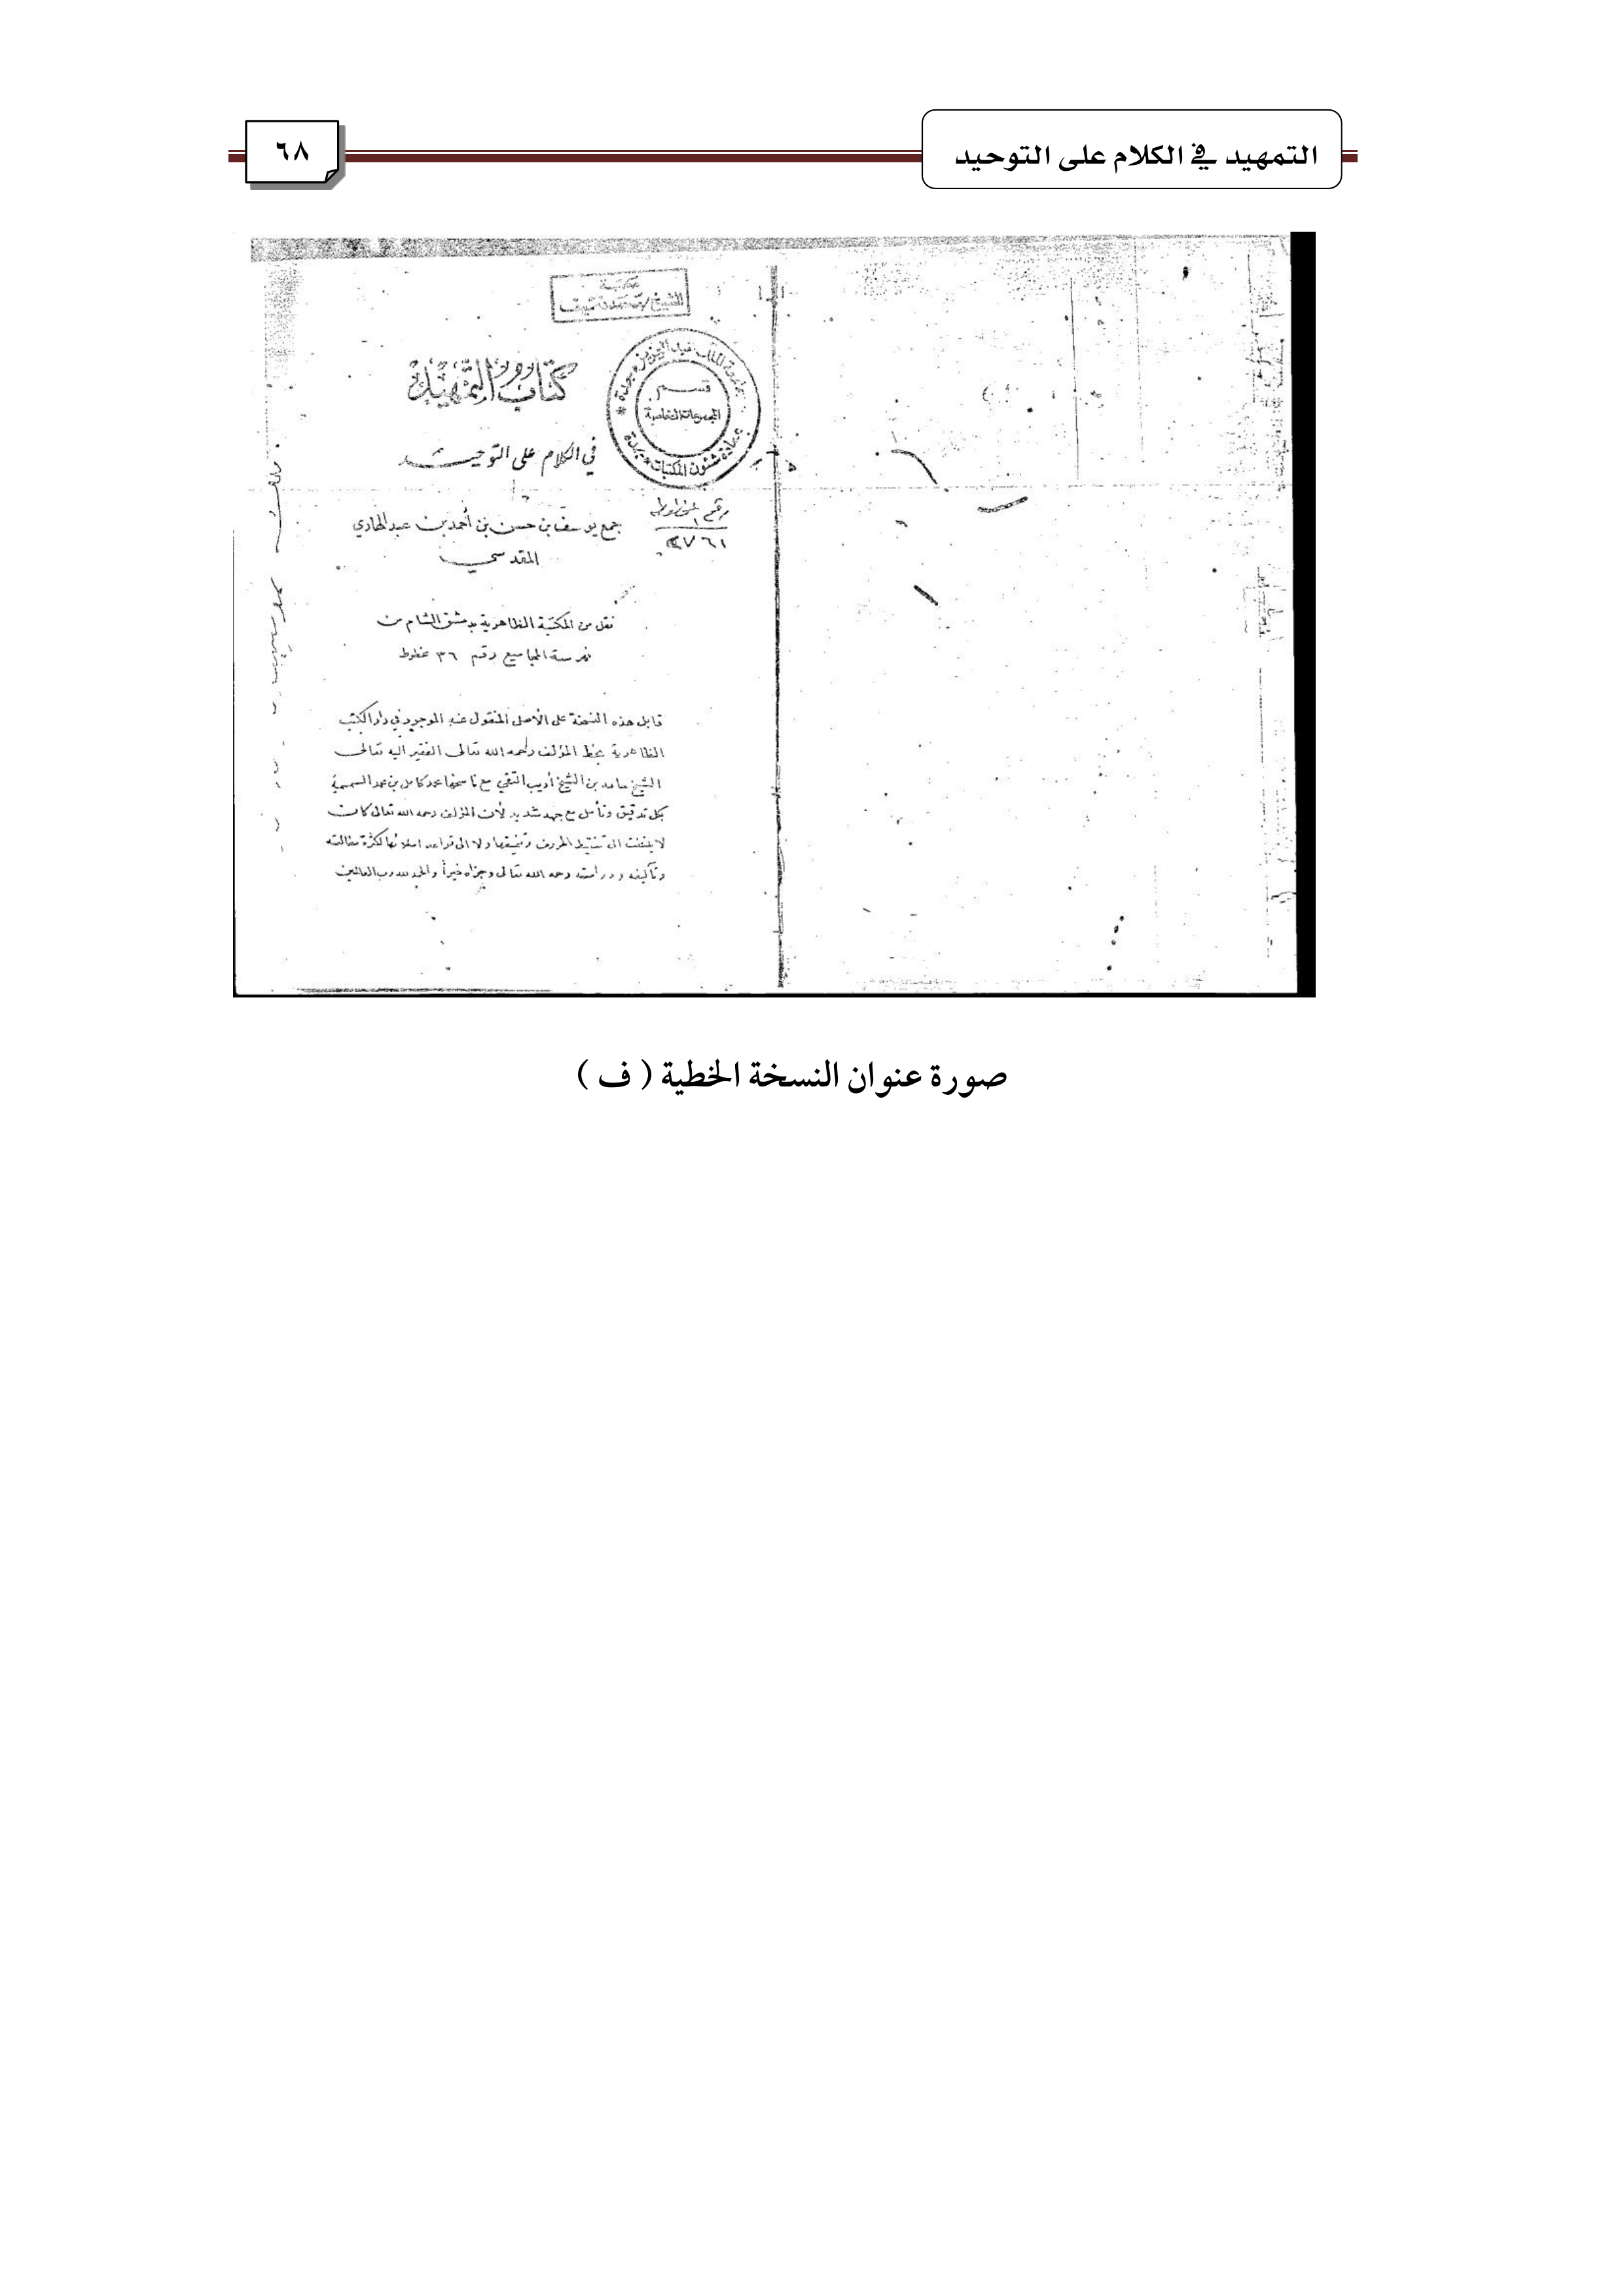 التمهيد في الكلام على التوحيد
٦٨
مكتبة
الشيخ محمد نصيف
كتاب التمهيد
في الكلام على التوحيد
جامعة الملك عبد العزيز بجدة
قسم
المجموعات الخاصة
عمادة شئون المكتبات بجدة
رقم مخطوطه
٢٧٦١
جمع يوسف بن حسن بن أحمد بن عبد الهادي
المقدسي
نقل من المكتبة الظاهرية بدمشق الشام من
فهرسة المجاميع رقم ٣٦ مخطوط
قابل هذه النسخة على الأصل المنقول عنه الموجود في دار الكتب
الظاهرية بخط المؤلف رحمه الله تعالى الفقير اليه تعالى
الشيخ حامد بن الشيخ أديب التقي مع ناسخها محمد كامل بن محمد السمسمية
بكل تدقيق وتأمل مع جهد شديد لأن المؤلف رحمه الله تعالى كان
لا يلتفت الى تنقيط الحروف ولا الى قواعد املائها لكثرة مطالعته
وتآليفه ودراسته رحمه الله تعالى وجزاه خيراً والحمد لله رب العالمين
صورة عنوان النسخة الخطية ( ف )